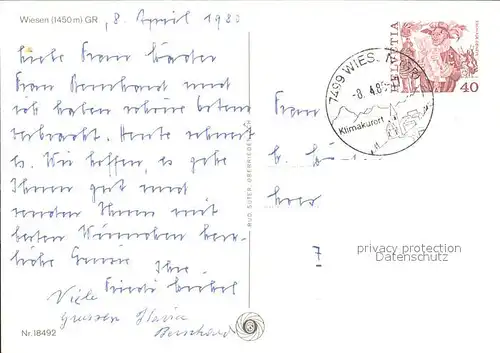 Wiesen (1450 m) GR
8. April 1980
Liebe Frau
Frau Bernhard und
ich haben schöne Ostern
verbracht. Heute schneit
es. Wir hoffen, es gehe
Ihnen gut und
senden Ihnen mit
besten Wünschen herz-
liche Grüsse Ihre
Viele
Grüsse
Bernhard
Nr. 18492
RUD. SUTER OBERRIEDEN-ZH
7499 WIESEN (GR)
-8. 4. 80
Klimakurort
HELVETIA
40
Frau
7
privacy protection
Datenschutz